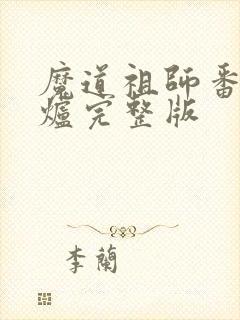 魔道祖師番
爐完整版
李蘭